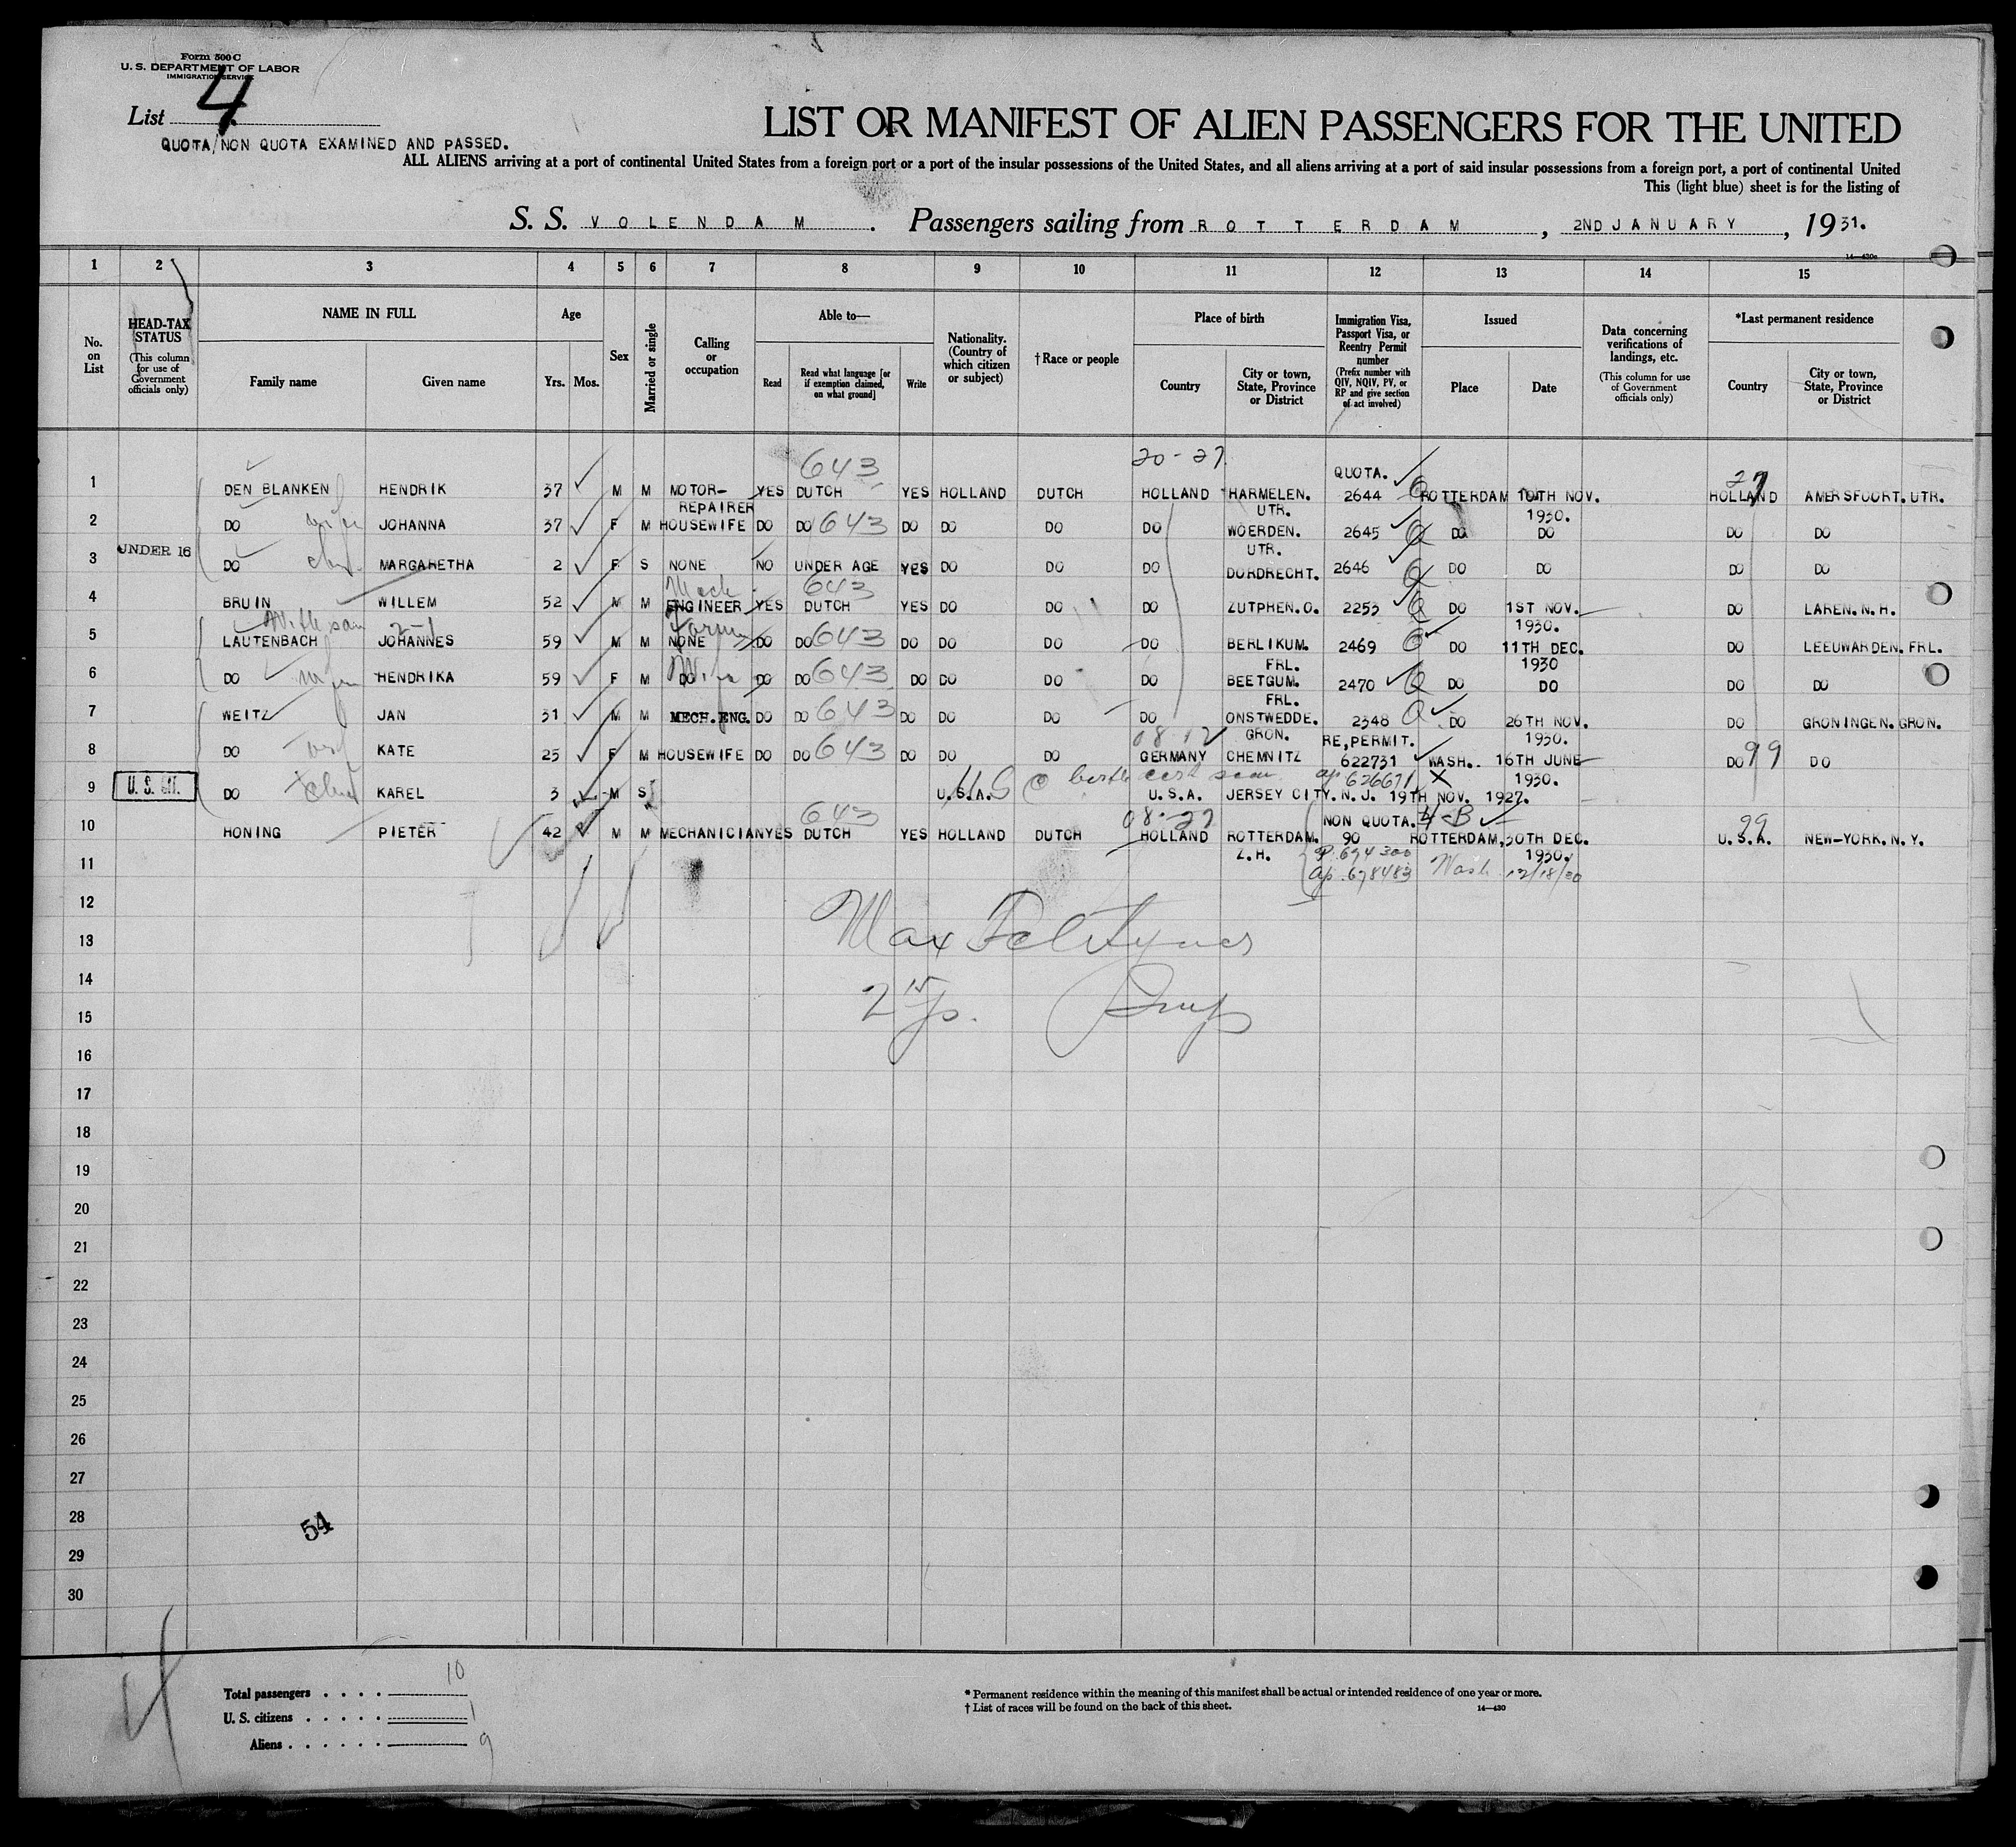 Form 500 C
U. S. DEPARTMENT OF LABOR
IMMIGRATION SERVICE
List 4
QUOTA/NON QUOTA EXAMINED AND PASSED.
LIST OR MANIFEST OF ALIEN PASSENGERS FOR THE UNITED
ALL ALIENS arriving at a port of continental United States from a foreign port or a port of the insular possessions of the United States, and all aliens arriving at a port of said insular possessions from a foreign port, a port of continental United
This (light blue) sheet is for the listing of
S. S. VOLENDAM. Passengers sailing from ROTTERDAM, 2ND JANUARY, 1931.
14—430c
1 2 3 4 5 6 7 8 9 10 11 12 13 14 15
No. on List
HEAD-TAX STATUS (This column for use of Government officials only)
NAME IN FULL
Family name Given name
Age
Yrs. Mos.
Sex
Married or single
Calling or occupation
Able to—
Read Read what language [or if exemption claimed, on what ground] Write
Nationality. (Country of which citizen or subject)
†Race or people
Place of birth
Country City or town, State, Province or District
Immigration Visa, Passport Visa, or Reentry Permit number (Prefix number with QIV, NQIV, PV, or RP and give section of act involved)
Issued
Place Date
Data concerning verifications of landings, etc. (This column for use of Government officials only)
*Last permanent residence
Country City or town, State, Province or District
643 20-27 QUOTA. 27
1 DEN BLANKEN HENDRIK 37 M M MOTOR- YES DUTCH YES HOLLAND DUTCH HOLLAND HARMELEN. 2644 Q ROTTERDAM 10TH NOV. HOLLAND AMERSFOORT. UTR.
REPAIRER UTR. 1930.
2 DO wife JOHANNA 37 F M HOUSEWIFE DO DO 643 DO DO DO DO WOERDEN. 2645 Q DO DO DO DO
UTR.
3 UNDER 16 DO MARGARETHA 2 F S NONE NO UNDER AGE YES DO DO DO DORDRECHT. 2646 Q DO DO DO DO
Mech 643
4 BRUIN WILLEM 52 M M ENGINEER YES DUTCH YES DO DO DO ZUTPHEN. O. 2253 Q DO 1ST NOV. DO LAREN. N. H.
2-1 1930.
5 LAUTENBACH JOHANNES 59 M M NONE DO DO 643 DO DO DO DO BERLIKUM. 2469 Q DO 11TH DEC. DO LEEUWARDEN. FRL.
FRL. 1930
6 DO HENDRIKA 59 F M DO DO DO 643 DO DO DO DO BEETGUM. 2470 Q DO DO DO DO
FRL.
7 WEITZ JAN 31 M M MECH. ENG. DO DO 643 DO DO DO DO ONSTWEDDE. 2348 Q DO 26TH NOV. DO GRONINGEN. GRON.
08 12 GRON. RE, PERMIT. 1930.
8 DO KATE 25 F M HOUSEWIFE DO DO 643 DO DO DO GERMANY CHEMNITZ 622731 WASH. 16TH JUNE DO 99 DO
ap 626671 X 1930.
9 U. S. DO KAREL 3 M S U.S.A. U.S.A. JERSEY CITY. N. J. 19TH NOV. 1927.
643 08-27 NON QUOTA. 4-B 99
10 HONING PIETER 42 M M MECHANICIAN YES DUTCH YES HOLLAND DUTCH HOLLAND ROTTERDAM. 90 ROTTERDAM, 30TH DEC. U.S.A. NEW-YORK. N. Y.
Z. H. 694300 1930.
11 ap 678483 Wash 12/18/30
12
13 Max
14
15
16
17
18
19
20
21
22
23
24
25
26
27
28
54
29
30
4
Total passengers . . . . 10
U. S. citizens . . . . . 1
Aliens . . . . . . 9
* Permanent residence within the meaning of this manifest shall be actual or intended residence of one year or more.
† List of races will be found on the back of this sheet. 14—430